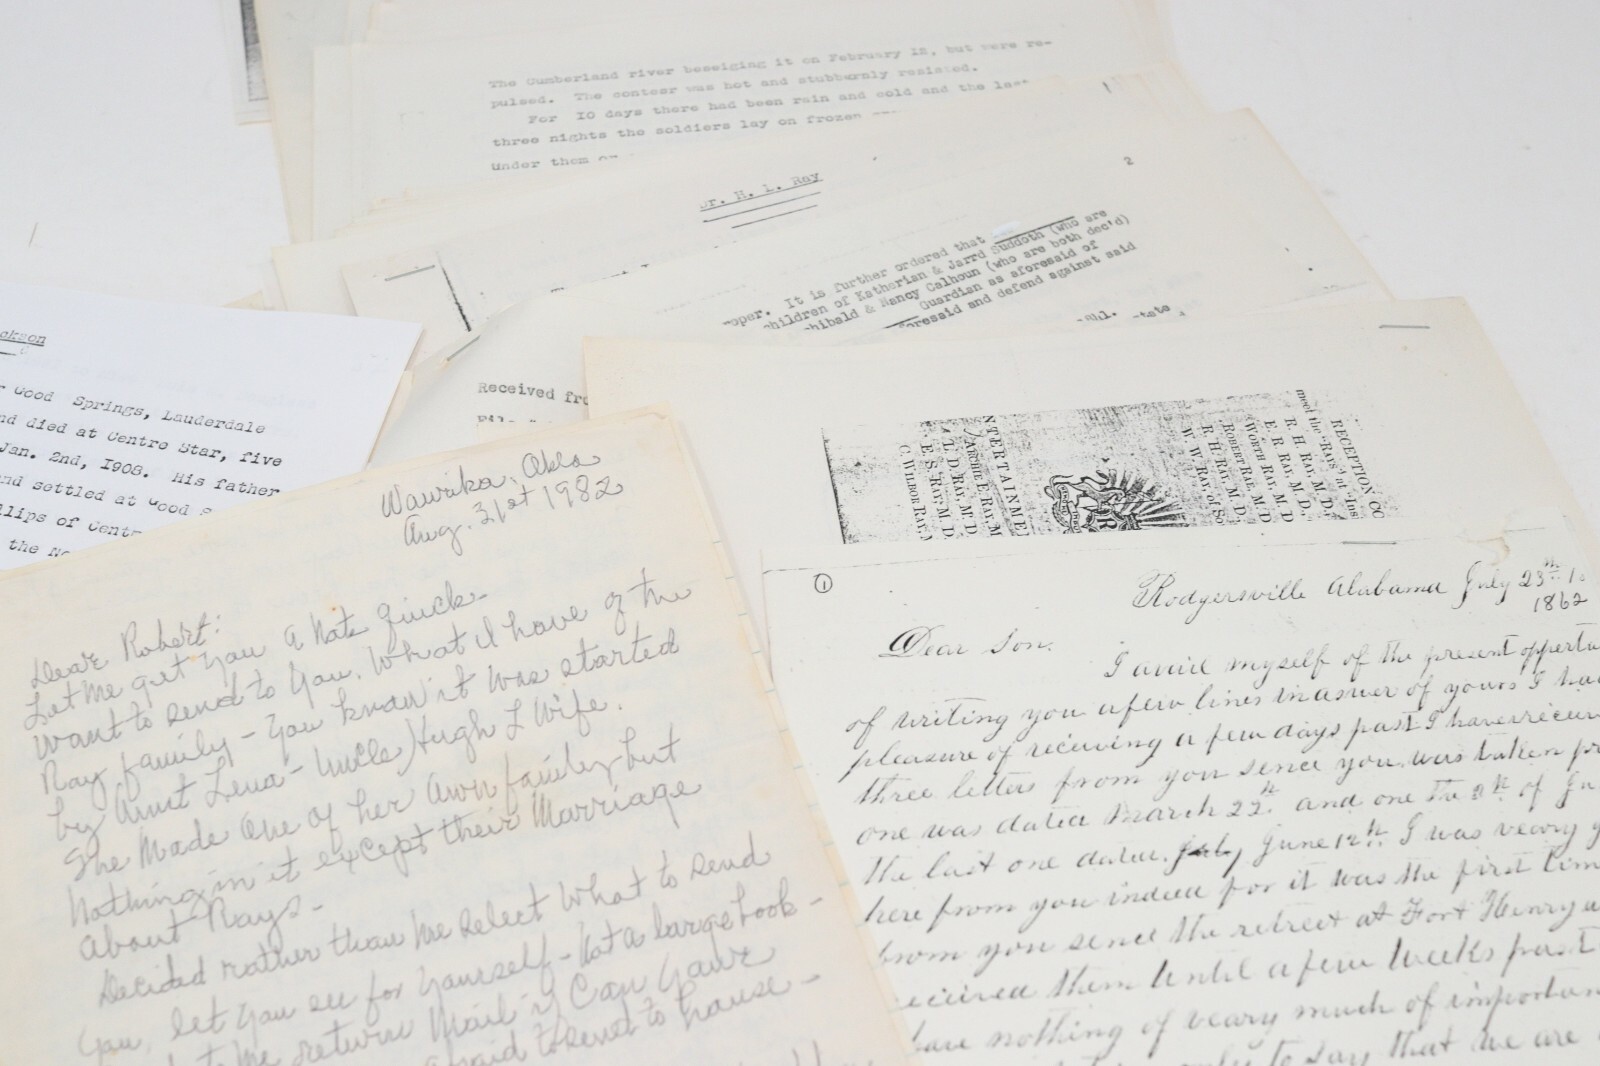 The Cumberland river beseiging it on February 12, but were re-
pulsed. The contest was hot and stubbornly resisted.
For 10 days there had been rain and cold and the last
three nights the soldiers lay on frozen
Under them
Dr. H. L. Ray
2
It is further ordered that
children of Katherian & Jarrd Suddoth (who are
Nancy Calhoun (who are both dec'd)
Guardian as aforesaid of
and defend against said
Received from
Good Springs, Lauderdale
died at Centre Star, five
Jan. 2nd, 1908. His father
settled at Good
of
the
RECEPTION CO
meet the "Rays" at "Ins
R. H. RAY, M. D.,
E. R. RAY, M. D.,
WORTH RAY, M. D.
ROBERT RAE, M. D.
R. H. RAY, M. D.,
W. W. RAY, of So
NTERTAINME
ARCHIE E. RAY, M
L. D. RAY, M. D.
E. S. RAY, M. D.
C. WILBOR RAY,
Waurika, Okla
Aug. 31st 1982
Dear Robert:
Let me get you a note quick-
want to send to you. What I have of the
Ray family - You know it was started
by Aunt Lena - Uncle Hugh L Wife.
She Made One of her Own family but
Nothing in it except their Marriage
About Rays-
Decided rather than Me select What to send
You, let you see for yourself - Not a large book -
Me return Mail if Can Have
to send to house -
1
Rodgersville Alabama July 23th
1862
Dear Son.
I avail myself of the present
of writing you a few lines in aswer of yours I
pleasure of receiving a few days past I have
three letters from you sence you was taken
one was dated March 22th and one the of
the last one dated July June 12th I was veary
here from you indeed for it was the first
from you sence the retreet at Fort Henry
them until a few weeks past
have nothing of veary much of
to say that we are